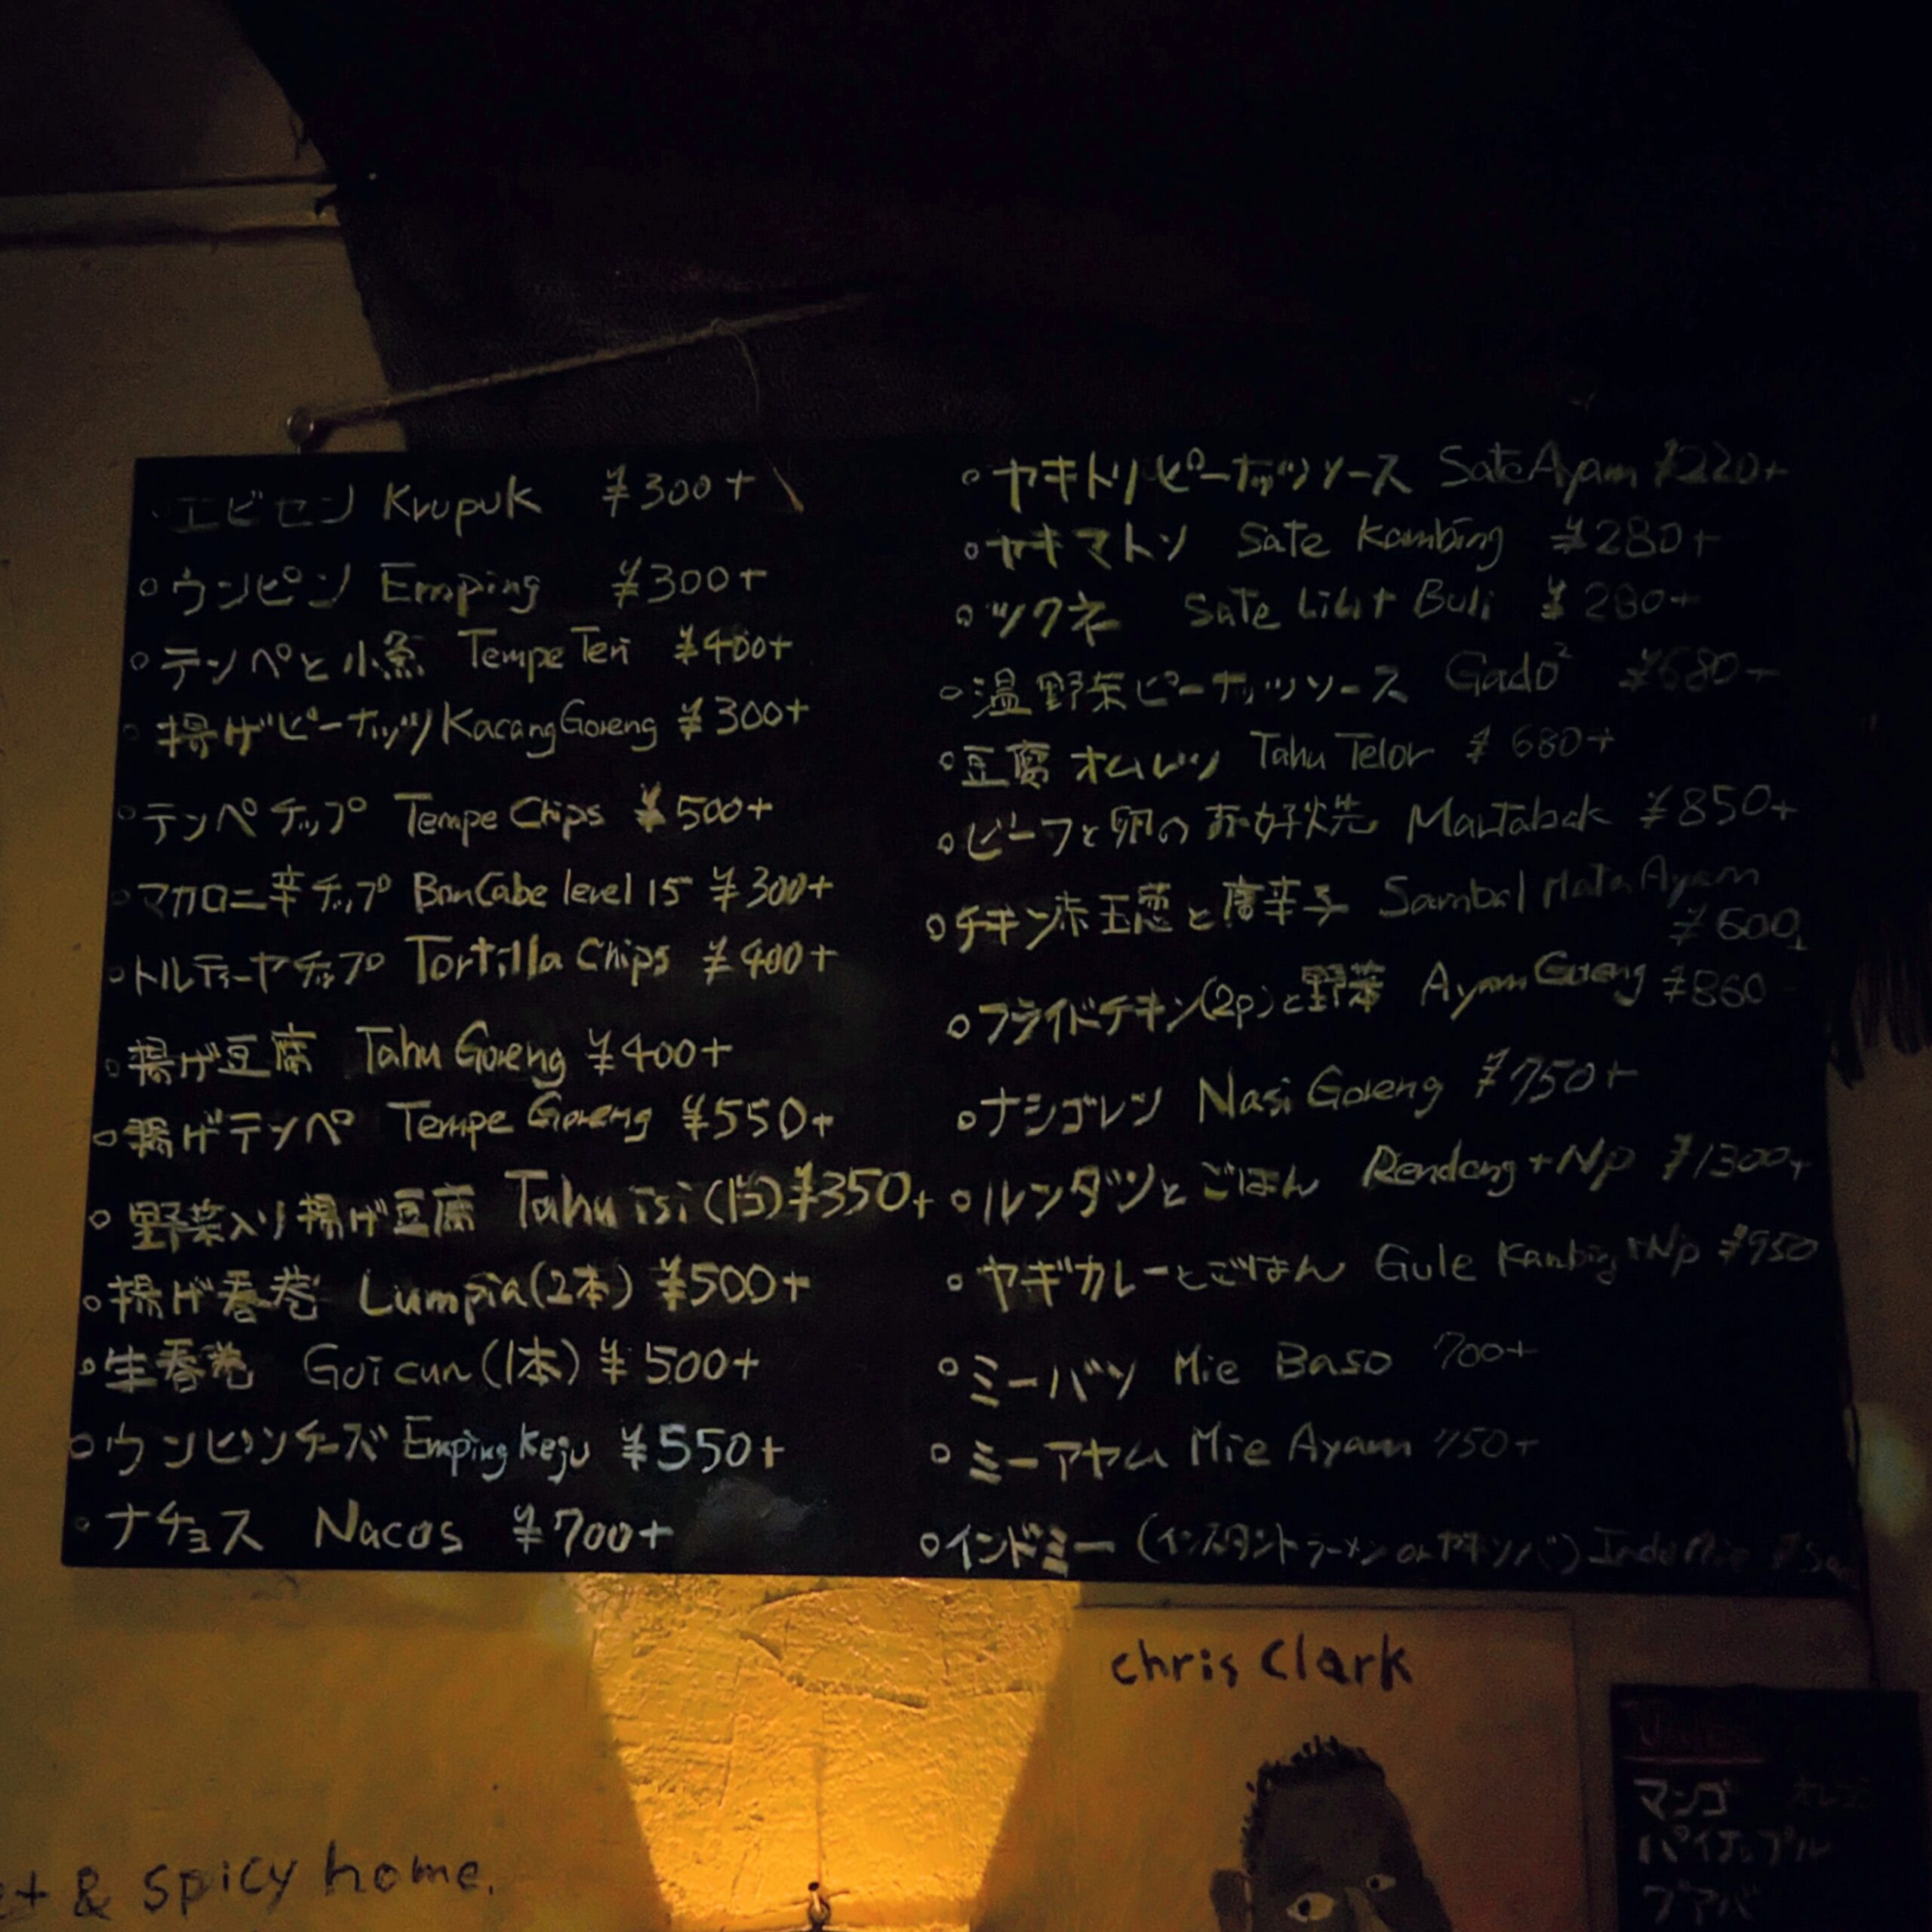 エビセン Krupuk ¥300+
ウンピン Emping ¥300+
テンペと小魚 Tempe Teri ¥400+
揚げピーナッツ Kacang Goreng ¥300+
テンペチップ Tempe Chips ¥500+
マカロニ辛チップ BonCabe level 15 ¥300+
トルティーヤチップ Tortilla Chips ¥400+
揚げ豆腐 Tahu Goreng ¥400+
揚げテンペ Tempe Goreng ¥550+
野菜入り揚げ豆腐 Tahu isi ¥350+
揚げ春巻 Lumpia (2本) ¥500+
生春巻 Goi cun (1本) ¥500+
ウンピンチーズ Emping Keju ¥550+
ナチョス Nacos ¥700+
ヤキトリピーナッツソース Sate Ayam ¥220+
ヤキマトン Sate Kambing ¥280+
ツクネ Sate Lilit Bali ¥280+
温野菜ピーナッツソース Gado² ¥680+
豆腐オムレツ Tahu Telor ¥680+
ビーフと卵のお好焼 Martabak ¥850+
チキン赤玉葱と唐辛子 Sambal Mata Ayam
¥600
フライドチキン(2p)と野菜 Ayam Goreng ¥860
ナシゴレン Nasi Goreng ¥750+
ルンダンとごはん Rendang + Np ¥1300+
ヤギカレーとごはん Gule Kambing + Np ¥950
ミーバソ Mie Baso 700+
ミーアヤム Mie Ayam 750+
インドミー (インスタントラーメン or ヤキソバ) Indo Mie
chris Clark
& spicy home.
マンゴ
パイナップル
グアバ